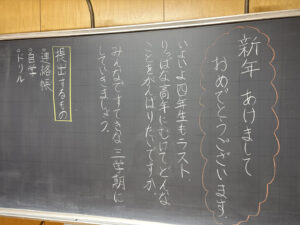 新年 あけまして
おめでとうございます。
いよいよ四年生もラスト、
りっぱな高年にむけてどんな
ことをがんばりたいですか。
みんなですてきな三学期に
していきましょう。
提出するもの
・連絡帳
・自学
・ドリル